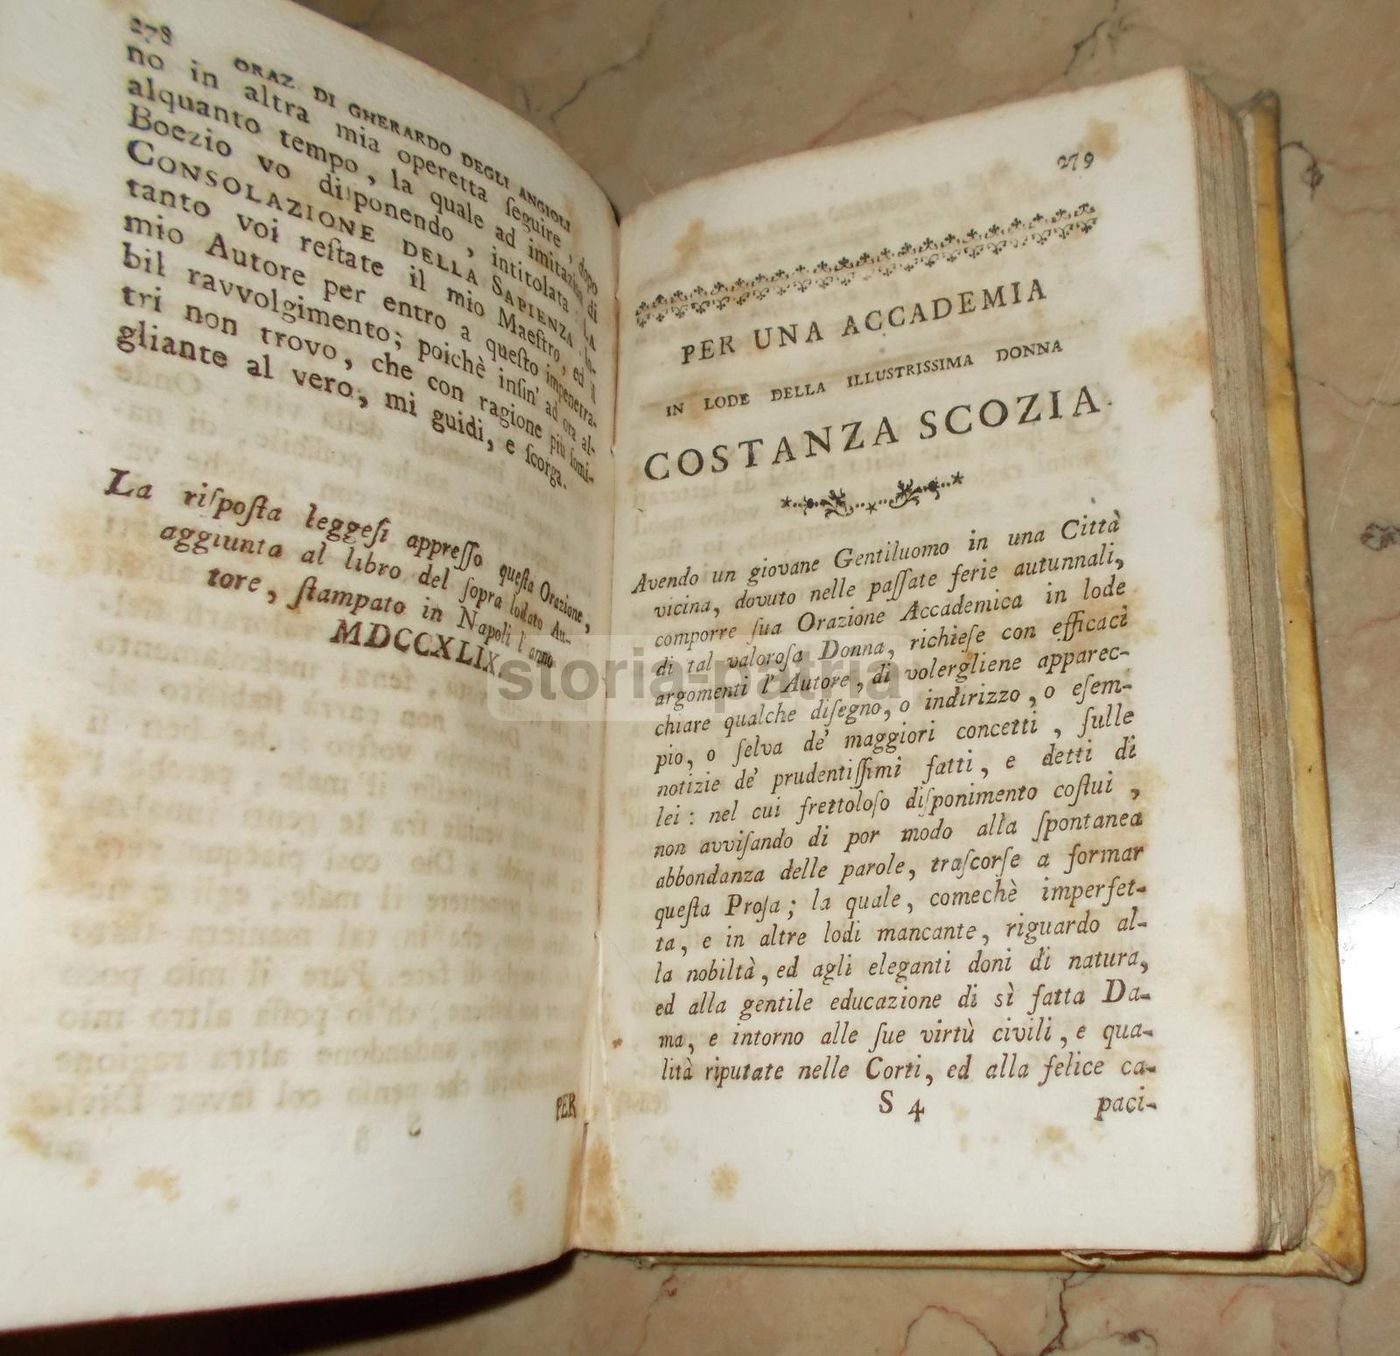 278
ORAZ. DI GHERARDO DEGLI ANGIOLI
no in altra mia operetta ſeguire, dopo
alquanto tempo, la quale ad imitazion di
Boezio vo diſponendo, intitolata: LA
CONSOLAZIONE DELLA SAPIENZA. In-
tanto voi reſtate il mio Maeſtro, ed il
mio Autore per entro a queſto impenetra-
bil ravvolgimento; poichè inſin' ad ora al-
tri non trovo, che con ragione più ſomi-
gliante al vero, mi guidi, e ſcorga.
La riſpoſta leggeſi appreſſo queſta Orazione,
aggiunta al libro del ſopra lodato Au-
tore, ſtampato in Napoli l'anno
MDCCXLIX.
PER
279
PER UNA ACCADEMIA
IN LODE DELLA ILLUSTRISSIMA DONNA
COSTANZA SCOZIA.
Avendo un giovane Gentiluomo in una Città
vicina, dovuto nelle paſſate ferie autunnali,
comporre ſua Orazione Accademica in lode
di tal valoroſa Donna, richieſe con efficaci
argomenti l'Autore, di volergliene apparec-
chiare qualche diſegno, o indirizzo, o eſem-
pio, o ſelva de' maggiori concetti, ſulle
notizie de' prudentiſſimi fatti, e detti di
lei: nel cui frettoloſo diſponimento coſtui,
non avviſando di por modo alla ſpontanea
abbondanza delle parole, traſcorſe a formar
queſta Proſa; la quale, comechè imperfet-
ta, e in altre lodi mancante, riguardo al-
la nobiltà, ed agli eleganti doni di natura,
ed alla gentile educazione di sì fatta Da-
ma, e intorno alle ſue virtù civili, e qua-
lità riputate nelle Corti, ed alla felice ca-
S 4
paci-
storia-patria